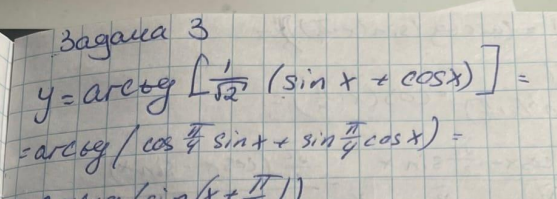 Задача 3
y = arctg [1/√2 (sin x + cos x)] =
= arctg (cos π/4 sin x + sin π/4 cos x) =
(sin (x + π